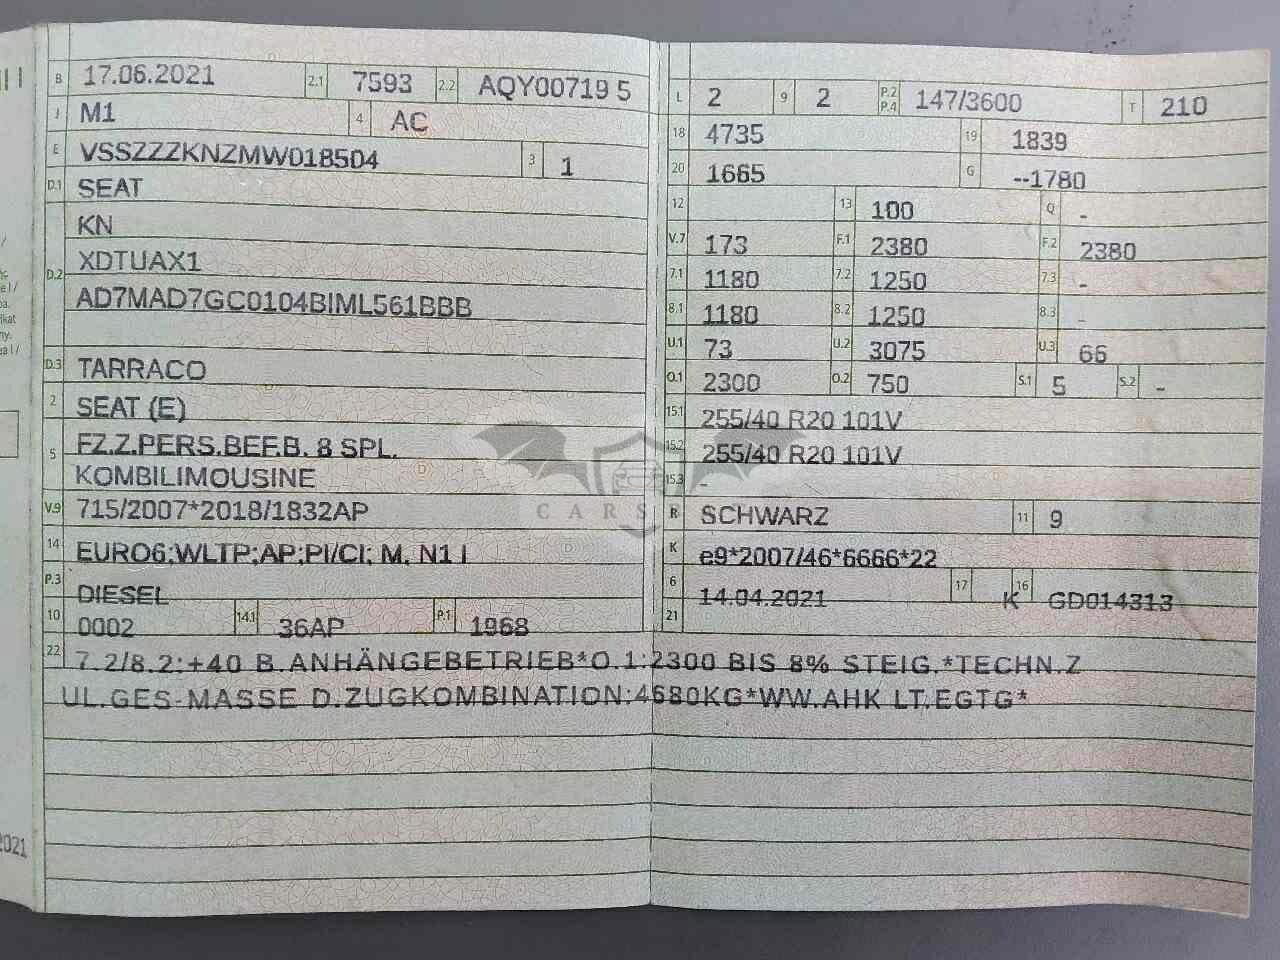 B 17.06.2021 2.1 7593 2.2 AQY00719 5
J M1 4 AC
E VSSZZZKNZMW018504 3 1
D.1 SEAT
KN
D.2 XDTUAX1
AD7MAD7GC0104BIML561BBB
D.3 TARRACO
2 SEAT (E)
5 FZ.Z.PERS.BEF.B. 8 SPL.
KOMBILIMOUSINE
V.9 715/2007*2018/1832AP
14 EURO6;WLTP;AP;PI/CI; M, N1 I
P.3 DIESEL
10 0002 14.1 36AP P.1 1968
L 2 9 2 P.2 P.4 147/3600 T 210
18 4735 19 1839
20 1665 G --1780
12 13 100 Q -
V.7 173 F.1 2380 F.2 2380
7.1 1180 7.2 1250 7.3 -
8.1 1180 8.2 1250 8.3 -
U.1 73 U.2 3075 U.3 66
O.1 2300 O.2 750 S.1 5 S.2 -
15.1 255/40 R20 101V
15.2 255/40 R20 101V
15.3 -
R SCHWARZ 11 9
K e9*2007/46*6666*22
6 14.04.2021 17 K 16 GD014313
21
22 7.2/8.2:+40 B.ANHÄNGEBETRIEB*O.1:2300 BIS 8% STEIG.*TECHN.Z
UL.GES-MASSE D.ZUGKOMBINATION:4680KG*WW.AHK LT.EGTG*
CARS
2021